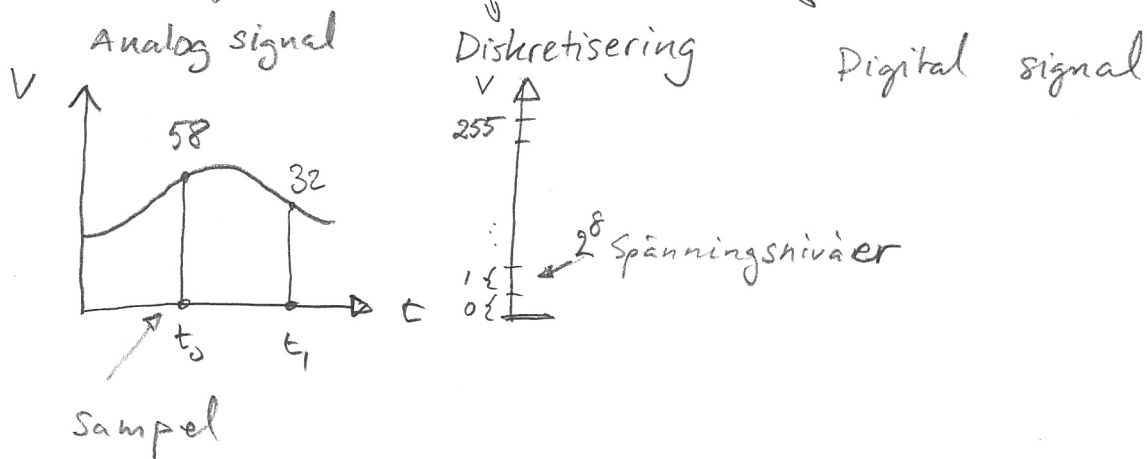 Analog signal
Diskretisering
Digital signal
V
58
32
t
t₀
t₁
Sampel
V
255
⋮
1{
0{
2⁸ Spänningsnivåer